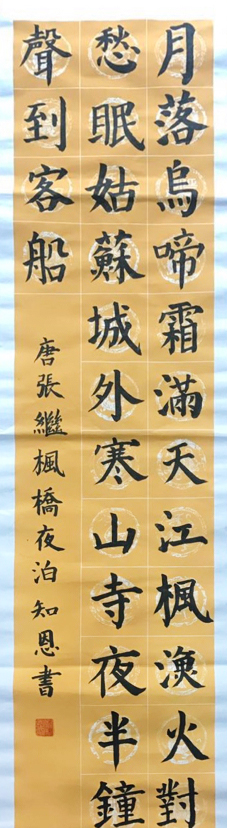 月落烏啼霜滿天江楓漁火對
愁眠姑蘇城外寒山寺夜半鐘
聲到客船
唐張繼楓橋夜泊知恩書